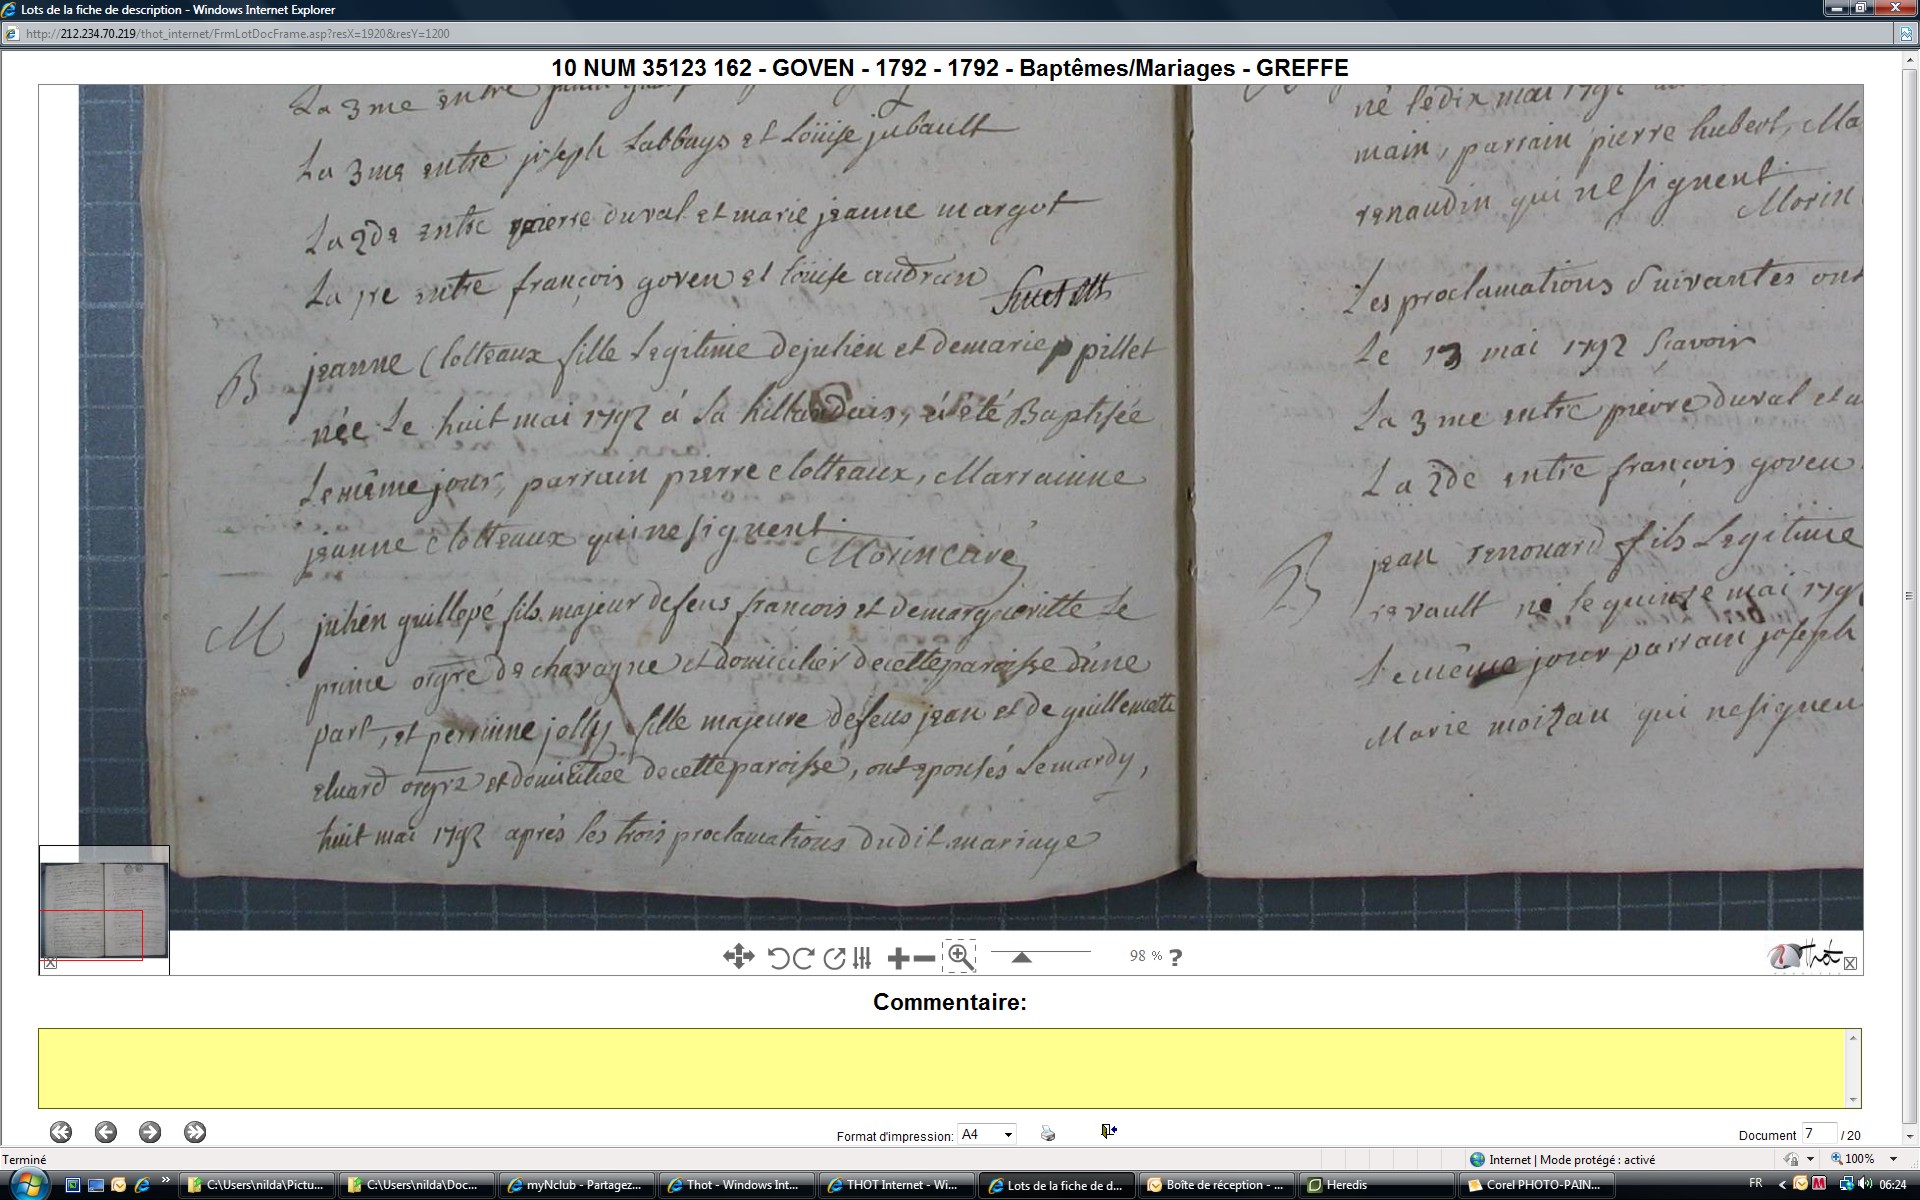 Lots de la fiche de description - Windows Internet Explorer
http://212.234.70.219/thot_internet/FrmLotDocFrame.asp?resX=1920&resY=1200
10 NUM 35123 162 - GOVEN - 1792 - 1792 - Baptêmes/Mariages - GREFFE
La 3me entre
La 3me entre joseph Labbays et Loüise jubault
La 2de entre pierre duval et marie jeanne margot
La 1re entre françois goven et Loüise audran
B
jeanne Clotteaux fille Legitime de julien et de marie pillet
née Le huit mai 1792 à La hillandais, à été Baptisée
Le même jour, parrain pierre clotteaux, Marrainne
jeanne clotteaux qui ne signent
Morin curé
M
julien guillopé fils majeur defeus françois et demargueritte Le
prime orgre de chavagne et domicilier decetteparoisse d'une
part, et perrinne jolly fille majeure defeus jean et de guillemette
eluard orgre et domiciliée decetteparoisse, ont epousés Lemardy,
huit mai 1792 aprés les trois proclamations dudit mariage
né le dix mai 1792
main, parrain pierre hubert, Ma
renaudin qui ne signent
Morin
Les proclamations Suivantes ont
Le 13 mai 1792 Scavoir
La 3me entre pierre duval et
La 2de entre françois goven
B
jean renouard fils Legitime
ravault né le quinze mai 1792
Le même jour parrain joseph
Marie moizan qui ne signen
98 % ?
Thot
Commentaire:
Format d'impression: A4
Document 7 / 20
Terminé
Internet | Mode protégé : activé
100%
C:\Users\nilda\Pictu...
C:\Users\nilda\Doc...
myNclub - Partagez...
Thot - Windows Int...
THOT Internet - Wi...
Lots de la fiche de d...
Boîte de réception - ...
Heredis
Corel PHOTO-PAIN...
FR
06:24